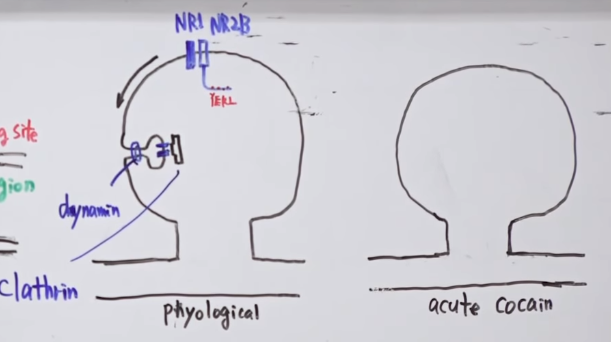 NR1 NR2B
YEKL
g site
gion
dynamin
clathrin
phyological
acute cocain